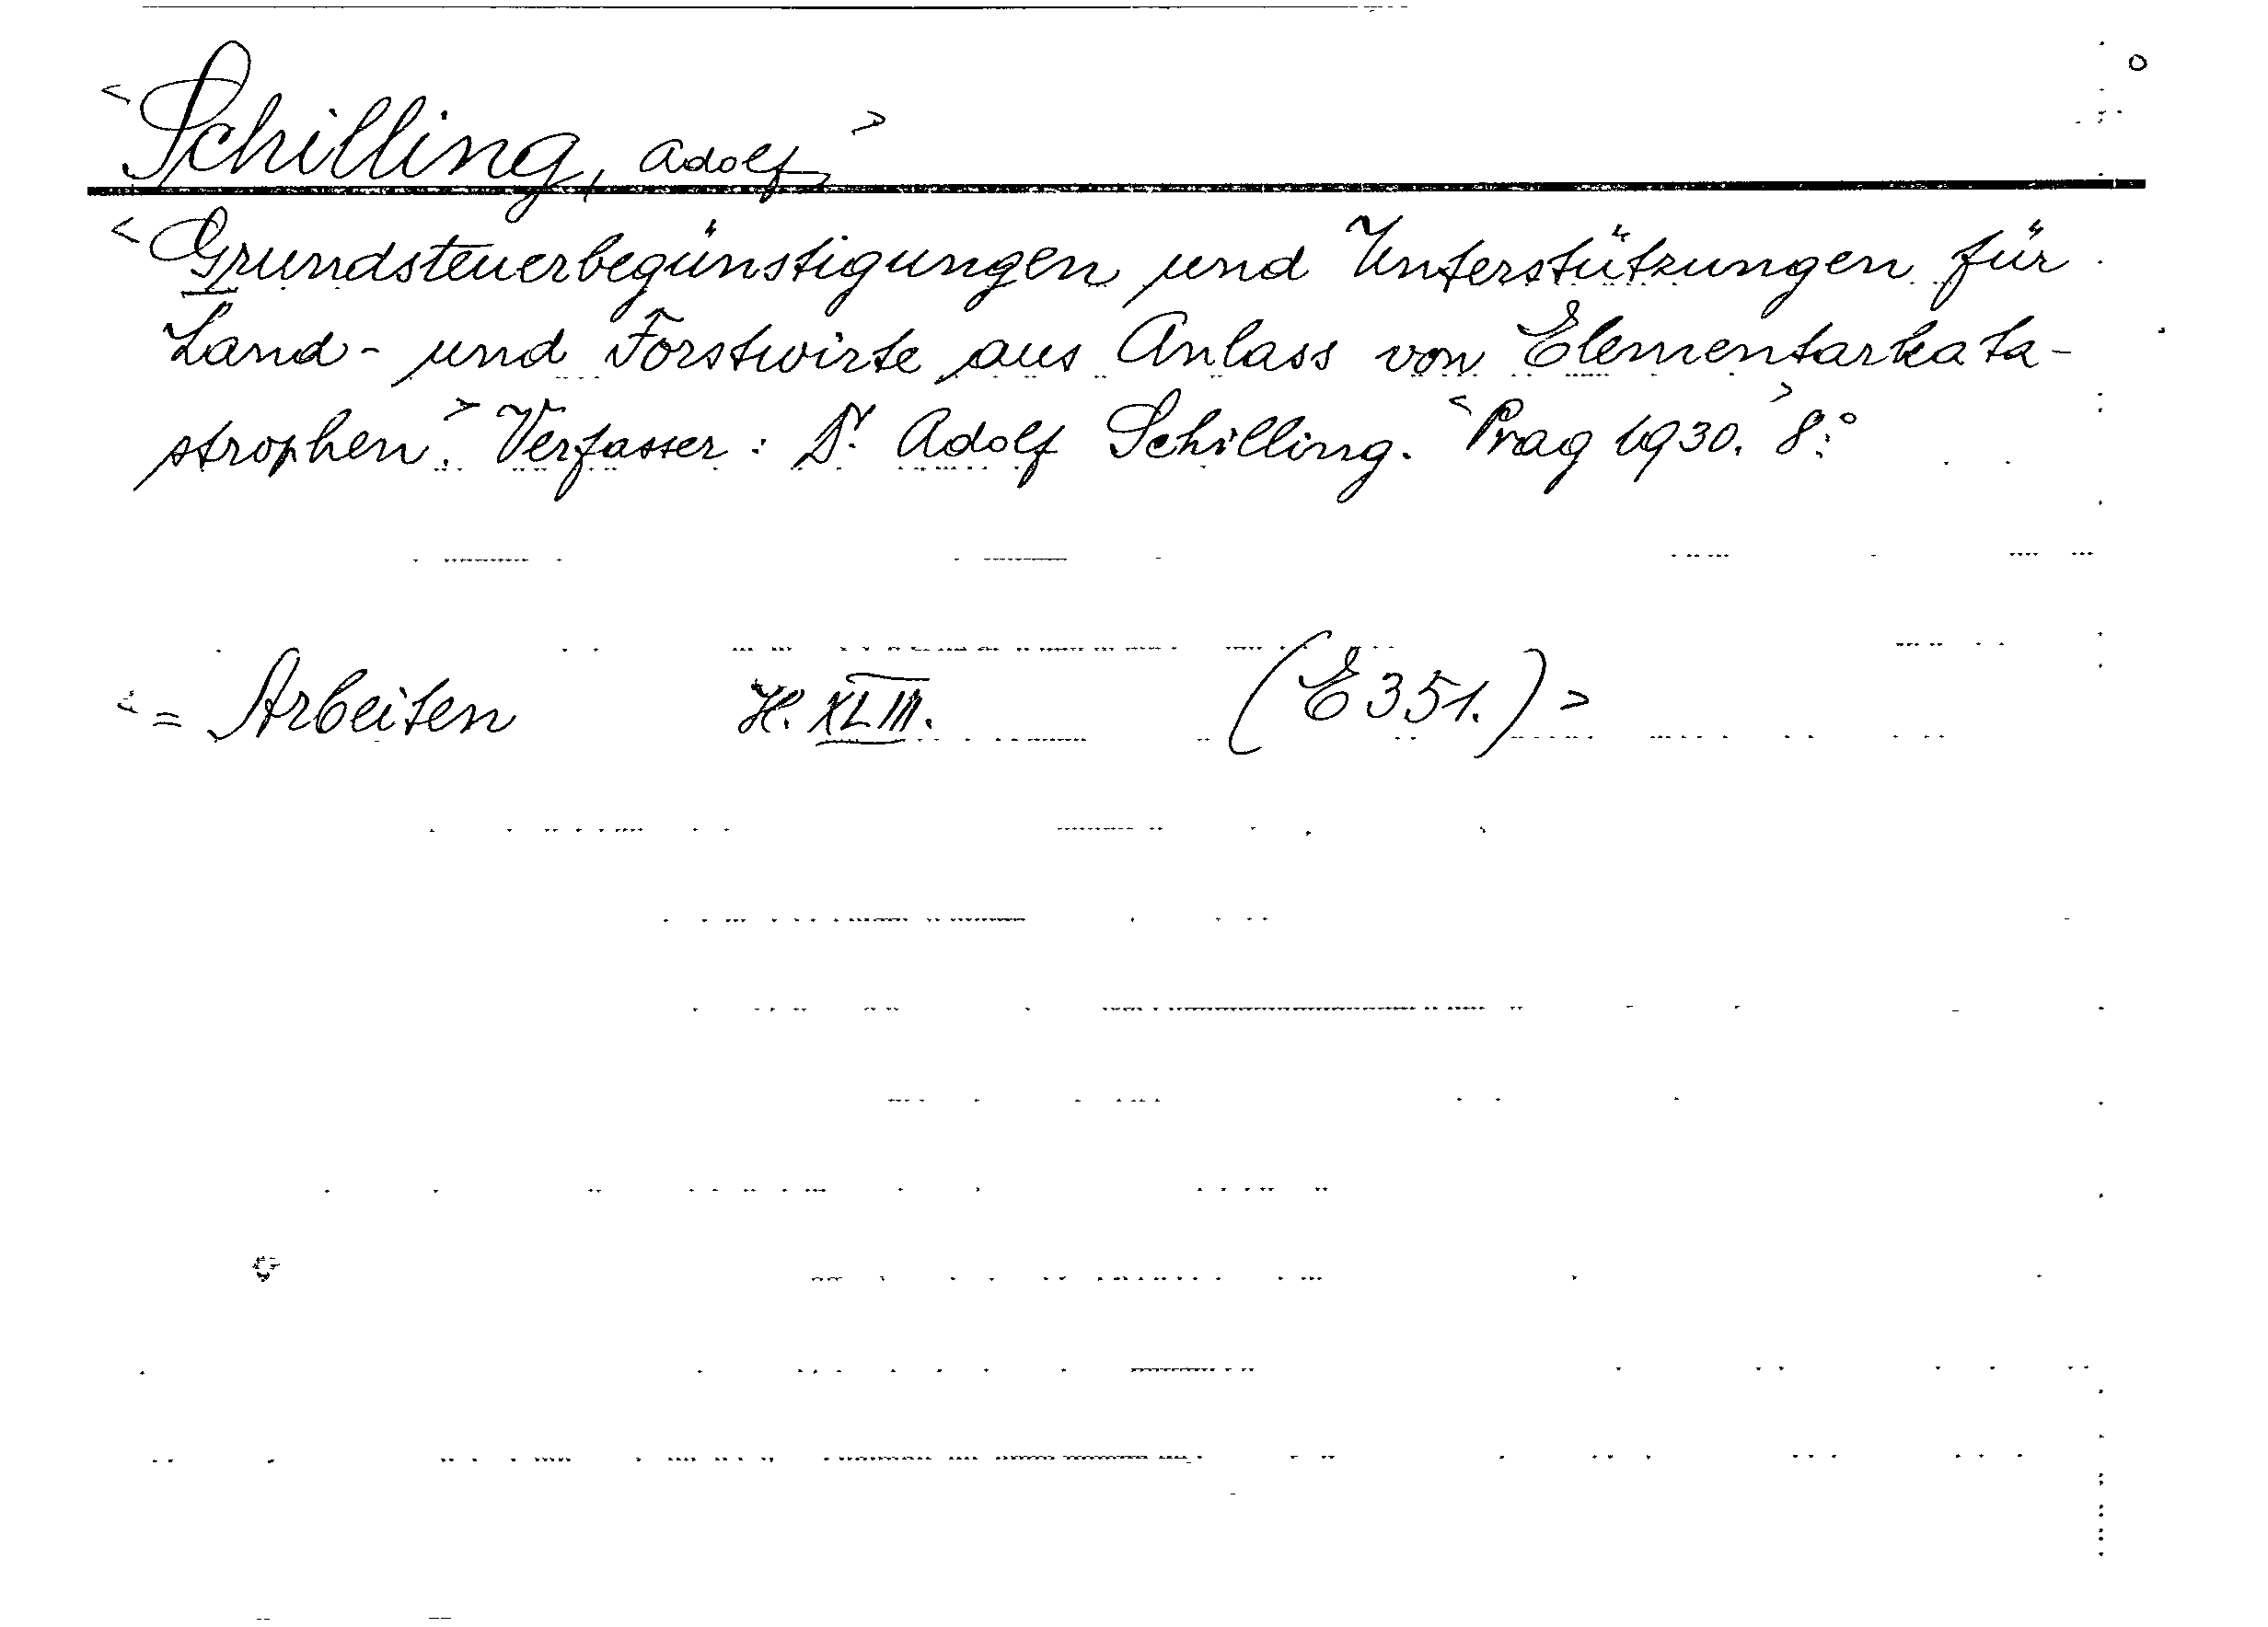 <Schilling, Adolf>
<Grundsteuerbegünstigungen und Unterstützungen für
Land- und Forstwirte aus Anlass von Elementarkata-
strophen.> Verfasser: Dr. Adolf Schilling. <Prag 1930.> 8.°
<= Arbeiten H. XLIII. (E 351.)>